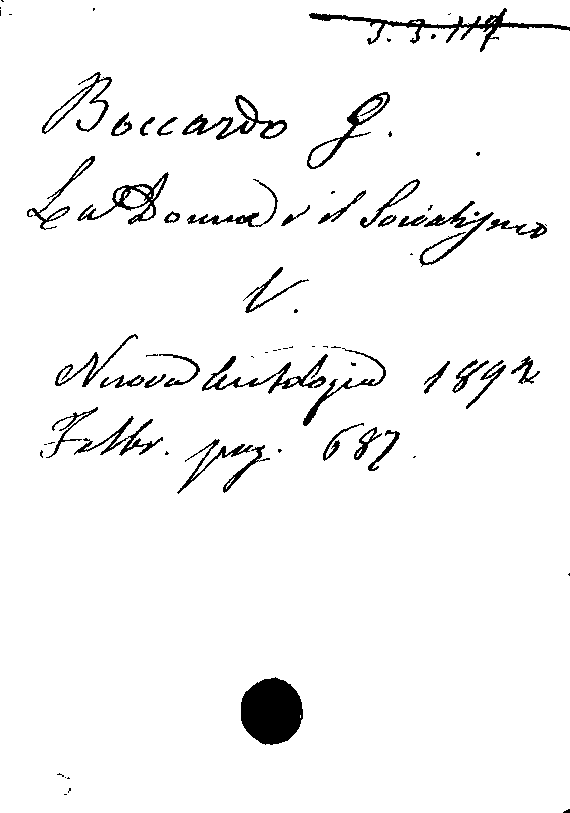 3.3.117
Boccardo G.
La Donna e il Socialismo
V.
Nuova Antologia 1892
Febbr. pag. 687.